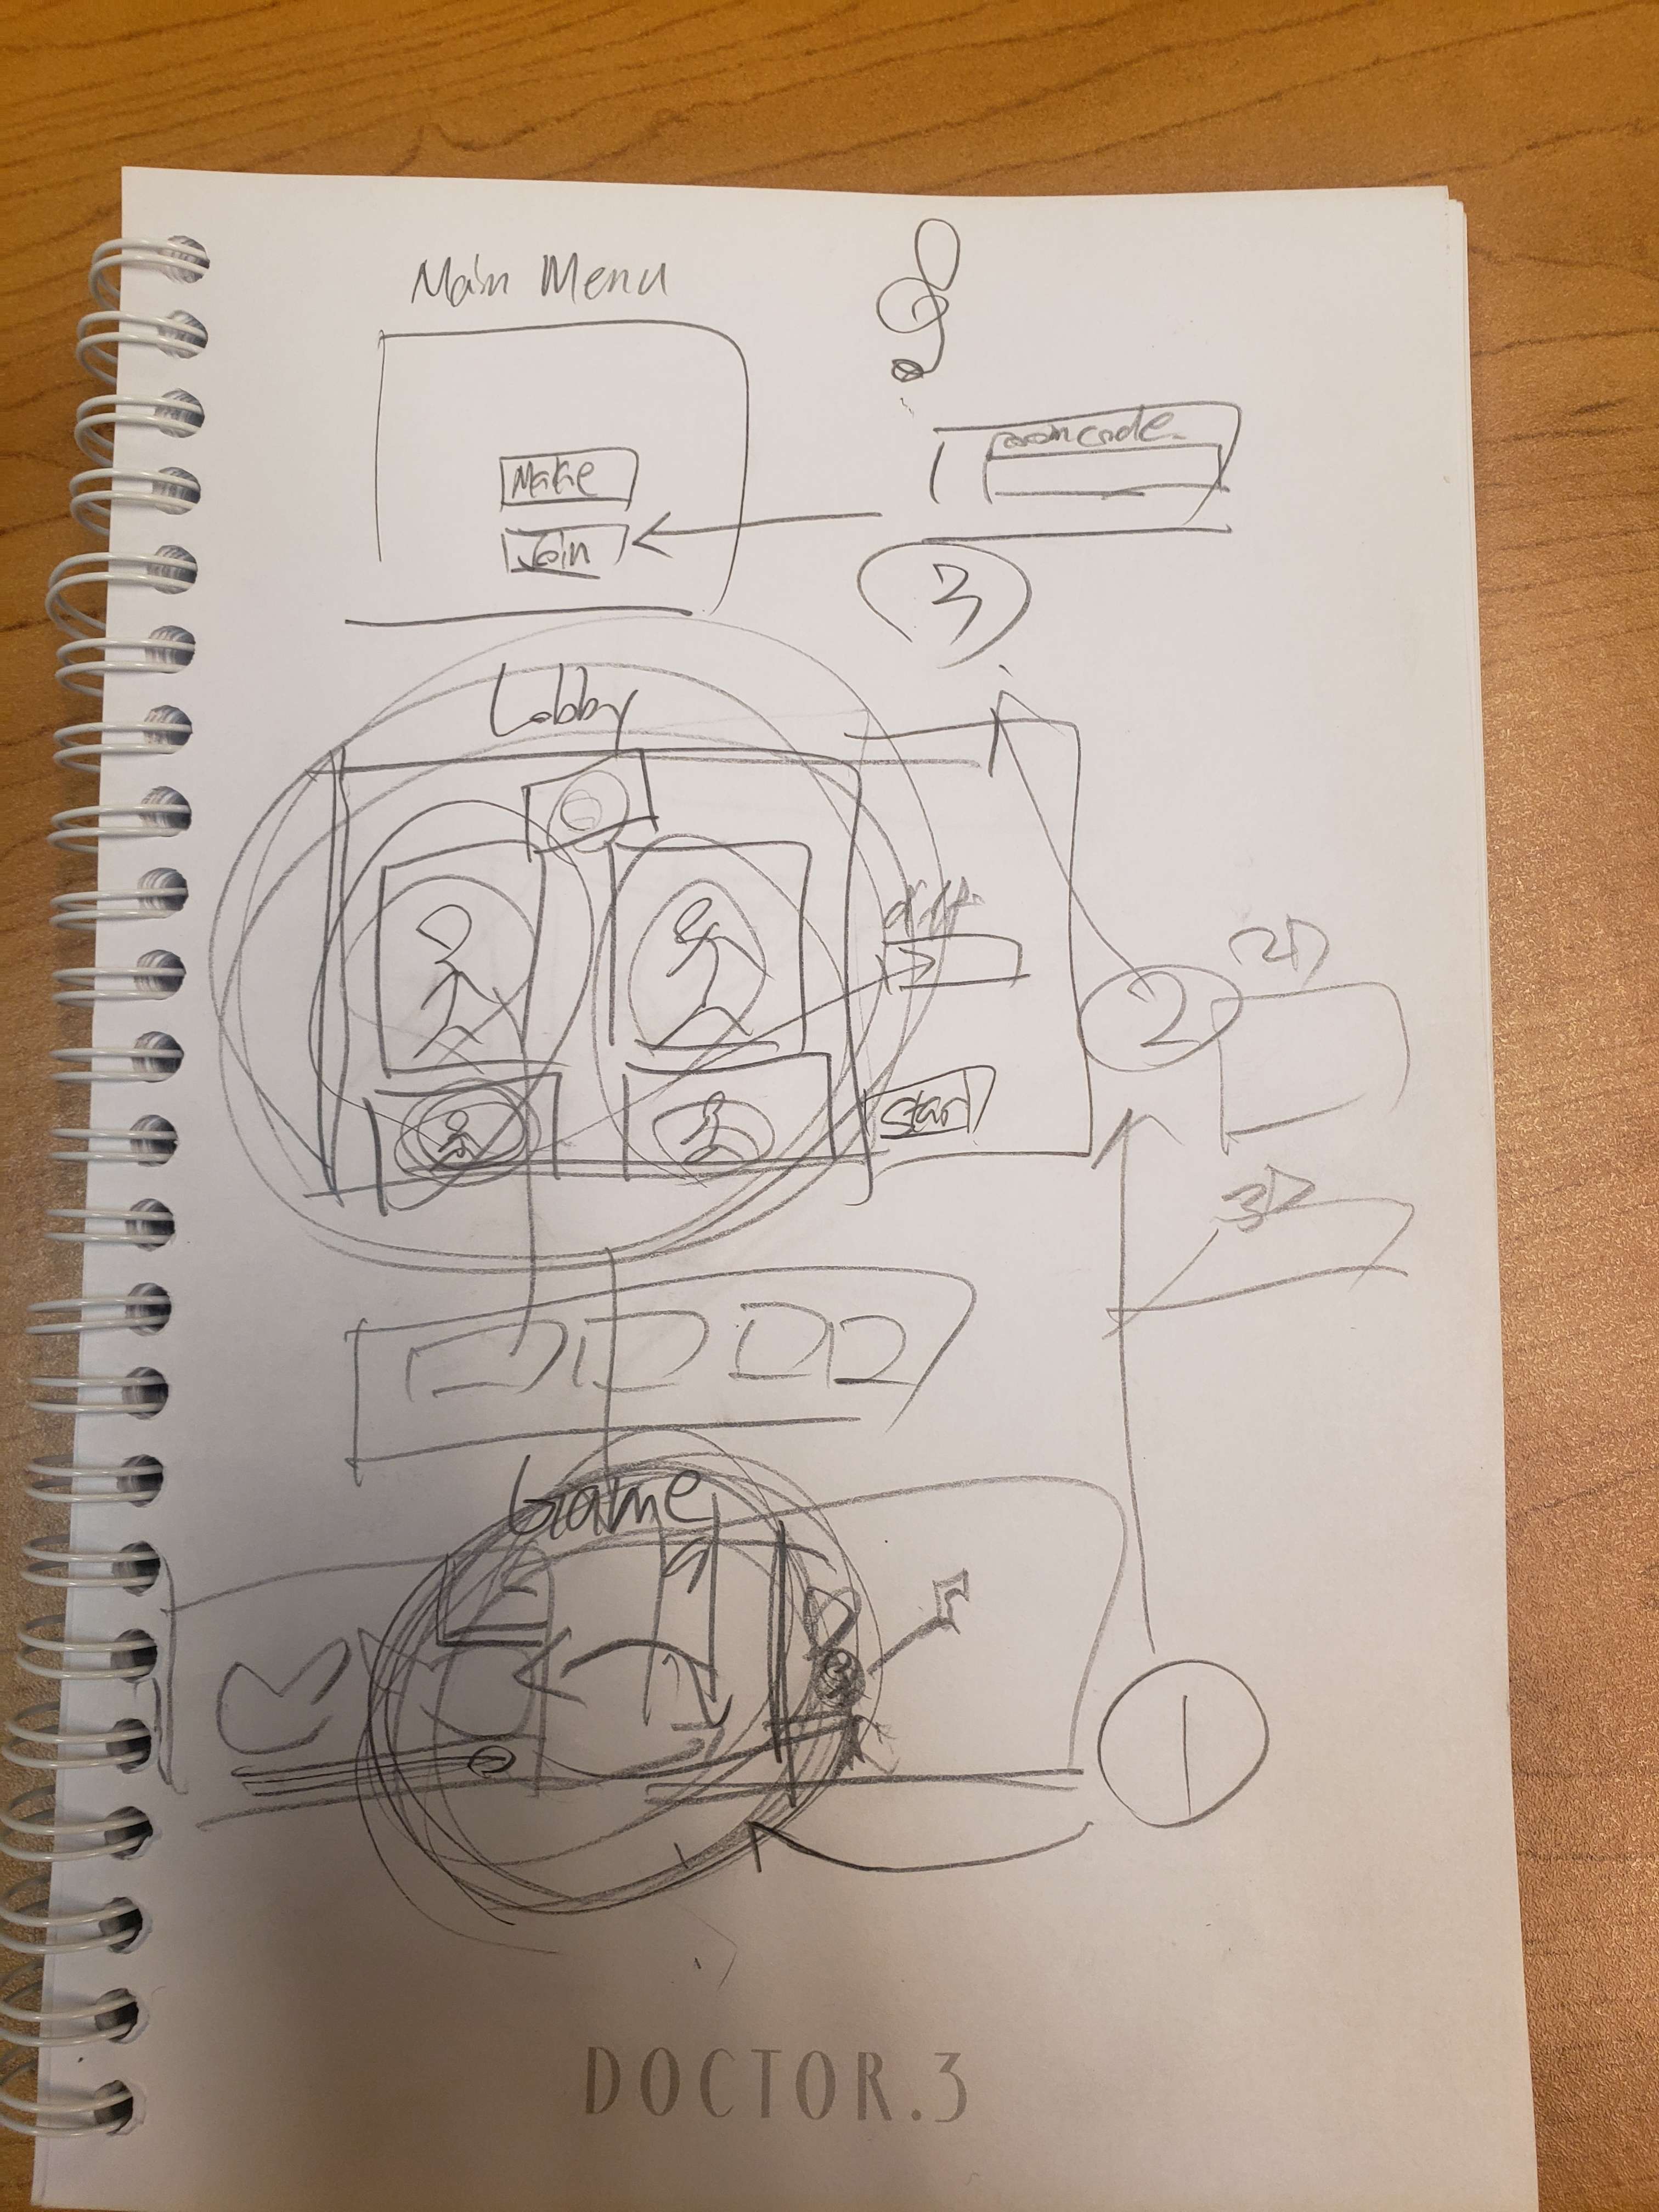 Main Menu
Make
Join
roomcode
3
Lobby
2
2D
start
3D
Game
1
DOCTOR.3